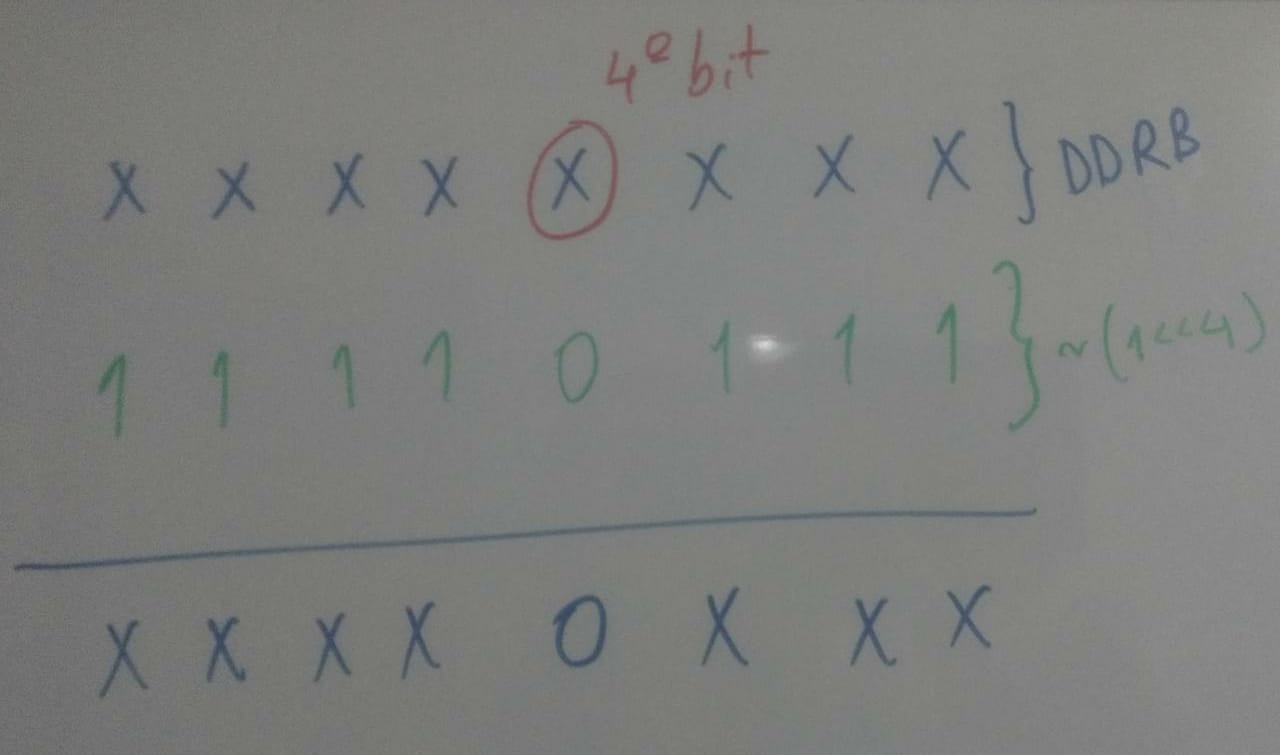 4º bit
X X X X X X X X } DDRB
1 1 1 1 0 1 1 1 } ~(1<<4)
X X X X 0 X X X